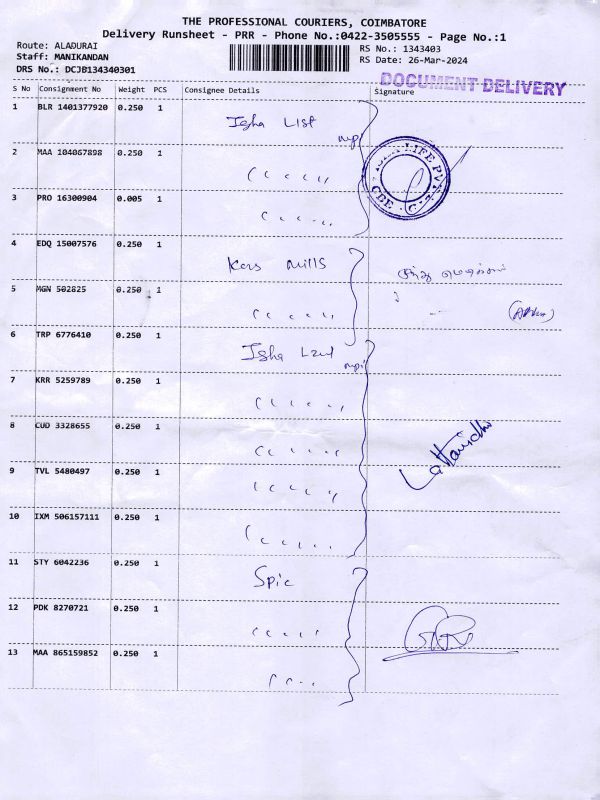 THE PROFESSIONAL COURIERS, COIMBATORE
Delivery Runsheet - PRR - Phone No.:0422-3505555 - Page No.:1
Route: ALADURAI
Staff: MANIKANDAN
DRS No.: DCJB134340301
RS No.: 1343403
RS Date: 26-Mar-2024
DOCUMENT DELIVERY
S No Consignment No Weight PCS Consignee Details Signature
1 BLR 1401377920 0.250 1
2 MAA 104067898 0.250 1
3 PRO 16300904 0.005 1
4 EDQ 15007576 0.250 1 Kers Mills
5 MGN 502825 0.250 1
6 TRP 6776410 0.250 1
7 KRR 5259789 0.250 1
8 CUD 3328655 0.250 1
9 TVL 5480497 0.250 1
10 IXM 506157111 0.250 1
11 STY 6042236 0.250 1 Spic
12 PDK 8270721 0.250 1
13 MAA 865159852 0.250 1